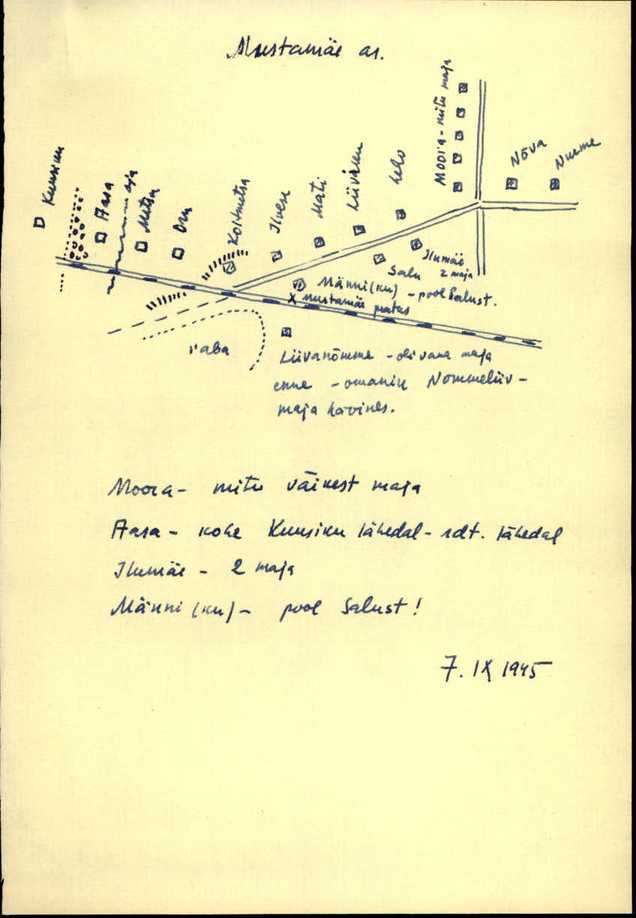 Mustamäe as.
Kuusiku
Aasa
oja
Mitra
Oru
Koitmetsa
Ilvese
Mati
Liiváku
Lelo
MOORA - mitu maja
NÕVA
Nurme
Ilumäe
2 maja
Salu
Männi(ku) - pool Salust.
X mustamäe peatus
raba
Liivanõmme - oli vana maja
enne - omanik Nõmmeliiv -
maja hävines.
Moora - mitu väikest maja
Aasa - kohe Kuusiku lähedal - rdt. lähedal
Ilumäe - 2 maja
Männi(ku) - pool Salust!
7. IX 1945